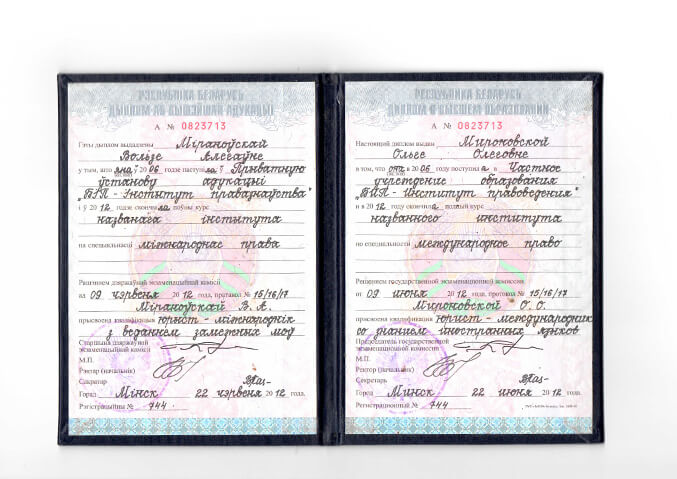 РЭСПУБЛІКА БЕЛАРУСЬ
ДЫПЛОМ АБ ВЫШЭЙШАЙ АДУКАЦЫІ
А № 0823713
Гэты дыплом выдадзены Міраноўскай
Вользе Алегаўне
у тым, што яна ў 2006 годзе паступіла ў Прыватную
ўстанову адукацыі
"БІП - Інстытут правазнаўства"
і ў 2012 годзе скончыла поўны курс
названага інстытута
па спецыяльнасці міжнароднае права
Рашэннем дзяржаўнай экзаменацыйнай камісіі
ад 09 чэрвеня 2012 года, пратакол № 15/16/17
Міраноўскай В. А.
прысвоена кваліфікацыя юрыст - міжнароднік
з веданнем замежных моў
Старшыня дзяржаўнай
экзаменацыйнай камісіі
М.П.
Рэктар (начальнік)
Сакратар
Горад Мінск 22 чэрвеня 2012 года.
Рэгістрацыйны № 744
РЕСПУБЛИКА БЕЛАРУСЬ
ДИПЛОМ О ВЫСШЕМ ОБРАЗОВАНИИ
А № 0823713
Настоящий диплом выдан Мироновской
Ольге Олеговне
в том, что она в 2006 году поступила в Частное
учреждение образования
"БИП - Институт правоведения"
и в 2012 году окончила полный курс
названного института
по специальности международное право
Решением государственной экзаменационной комиссии
от 09 июня 2012 года, протокол № 15/16/17
Мироновской О. О.
присвоена квалификация юрист - международник
со знанием иностранных языков
Председатель государственной
экзаменационной комиссии
М.П.
Ректор (начальник)
Секретарь
Город Минск 22 июня 2012 года.
Регистрационный № 744